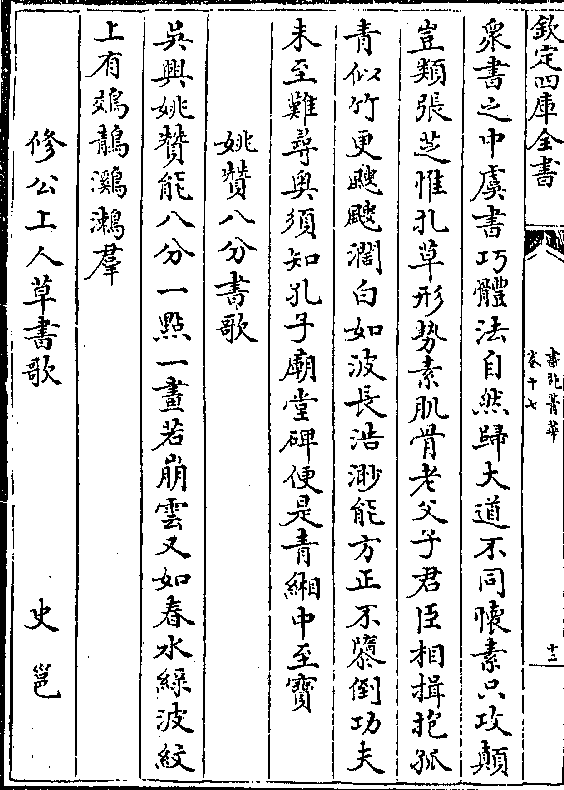 欽定四庫全書
書苑菁華
卷十七
十二
衆書之中虞書巧體法自然歸大道不同懷素只攻顛
豈類張芝惟孔草形勢素肌骨老父子君臣相揖抱孤
青似竹更颼颼濶白如波長浩渺能方正不隳倒功夫
未至難尋奥須知孔子廟堂碑便是青緗中至寳
姚贊八分書歌
吳興姚贊能八分一點一畫若崩雲又如春水綠波紋
上有鵁鶄鸂鷘羣
修公上人草書歌 史邕